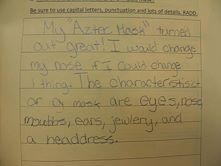 Be sure to use capital letters, punctuation and lots of details. RADD.
My "Aztec Mask" turned
out great! I would change
my nose if I could change
1 thing. The characteristics
or a mask are eyes, nose
mouths, ears, jewlery, and
a headdress.